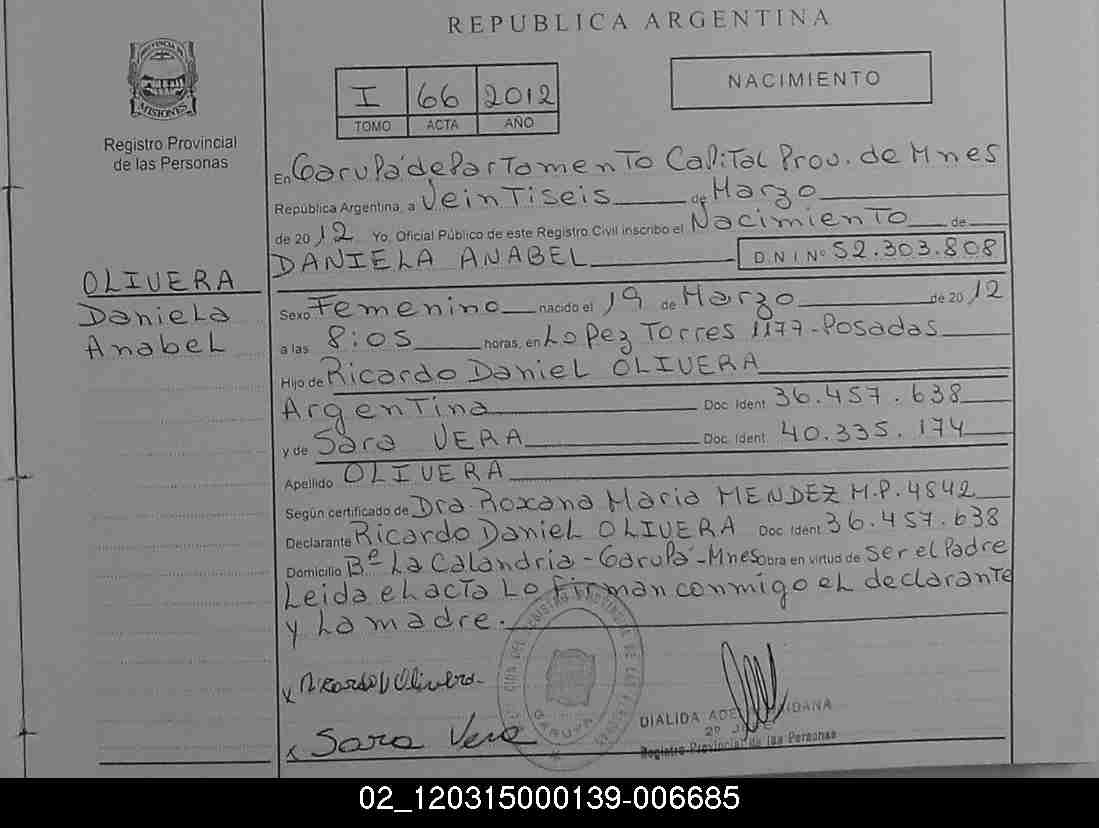 REPUBLICA ARGENTINA
PROVINCIA DE
MISIONES
Registro Provincial
de las Personas
I 66 2012
TOMO ACTA AÑO
NACIMIENTO
En Garupá departamento Capital Prov. de Mnes
República Argentina, a Veintiseis de Marzo
de 2012 Yo, Oficial Público de este Registro Civil inscribo el Nacimiento de
DANIELA ANABEL D.N.I Nº 52.303.808
OLIVERA
Daniela
Anabel
Sexo Femenino nacido el 19 de Marzo de 2012
a las 8:05 horas, en Lopez Torres 1177-Posadas
Hijo de Ricardo Daniel OLIVERA
Argentina Doc. Ident 36.457.638
y de Sara VERA Doc. Ident. 40.335.174
Apellido OLIVERA
Según certificado de Dra. Roxana Maria MENDEZ M.P. 4842
Declarante Ricardo Daniel OLIVERA Doc. Ident 36.457.638
Domicilio Bº La Calandria - Garupá - Mnes Obra en virtud de ser el Padre
Leida el acta Lo firman conmigo el declarante
y La madre.
x Ricardo Olivera
x Sara Vera
GARUPA
DIALIDA
Registro Provincial de las Personas
02_120315000139-006685